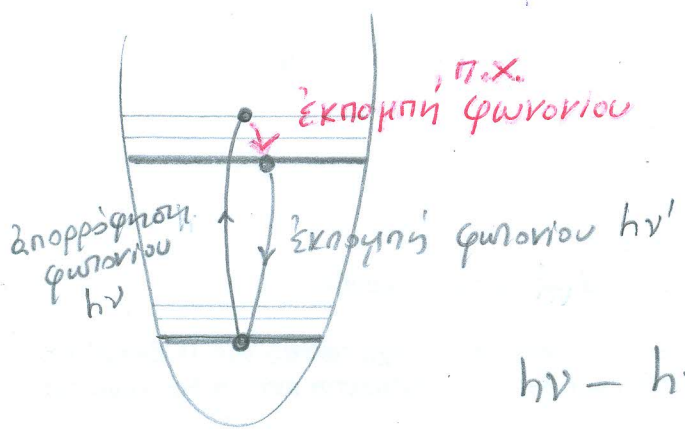 π.χ.
ἐκπομπή φωνονίου
ἀπορρόφηση
φωτονίου
hν
ἐκπομπή φωτονίου hν'
hν – h